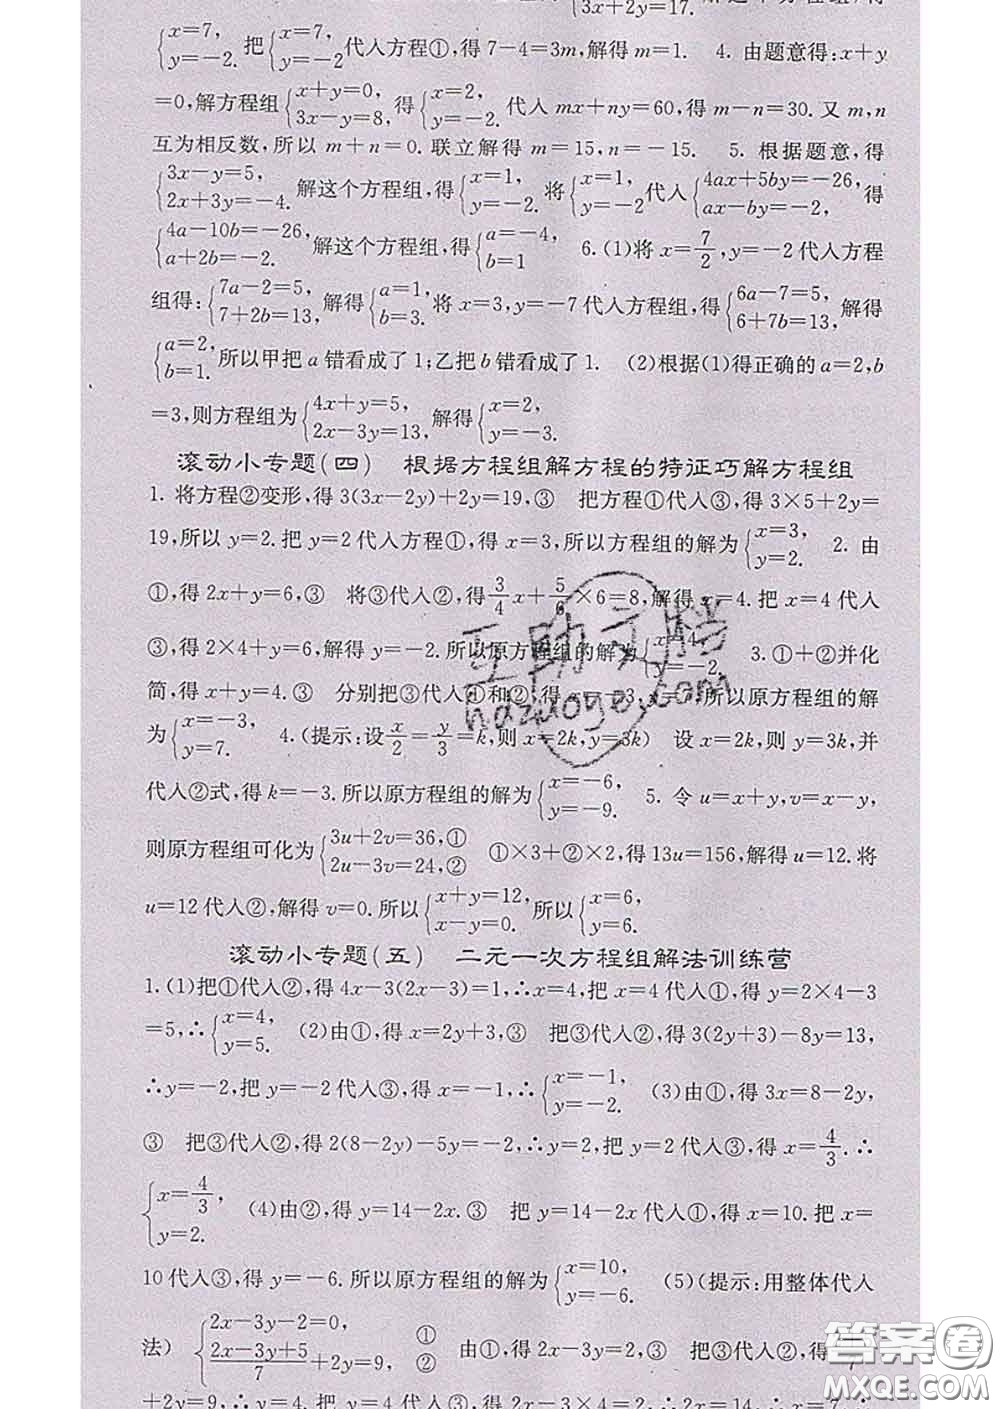 3x+2y=17.
{x=7, y=-2. 把{x=7, y=-2代入方程①,得7-4=3m,解得m=1. 4. 由题意得:x+y
=0,解方程组{x+y=0, 3x-y=8, 得{x=2, y=-2. 代入mx+ny=60,得m-n=30.又m,n
互为相反数,所以m+n=0.联立解得m=15,n=-15. 5. 根据题意,得
{3x-y=5, 2x+3y=-4. 解这个方程组,得{x=1, y=-2. 将{x=1, y=-2代入{4ax+5by=-26, ax-by=-2, 得
{4a-10b=-26, a+2b=-2. 解这个方程组,得{a=-4, b=1 6.(1)将x=7/2,y=-2代入方程
组得:{7a-2=5, 7+2b=13, 解得{a=1, b=3. 将x=3,y=-7代入方程组,得{6a-7=5, 6+7b=13, 解得
{a=2, b=1. 所以甲把a错看成了1;乙把b错看成了1. (2)根据(1)得正确的a=2,b
=3,则方程组为{4x+y=5, 2x-3y=13, 解得{x=2, y=-3.
滚动小专题(四) 根据方程组解方程的特征巧解方程组
1. 将方程②变形,得3(3x-2y)+2y=19,③ 把方程①代入③,得3×5+2y=
19,所以y=2.把y=2代入方程①,得x=3,所以方程组的解为{x=3, y=2. 2. 由
①,得2x+y=6,③ 将③代入②,得3/4x+5/6×6=8,解得x=4.把x=4代入
③,得2×4+y=6,解得y=-2.所以原方程组的解为{x=4, y=-2. 3.①+②并化
简,得x+y=4.③ 分别把③代入①和②,得 -3,x= 所以原方程组的解
为{x=-3, y=7. 4.(提示:设x/2=y/3=k,则x=2k,y=3k) 设x=2k,则y=3k,并
代入②式,得k=-3.所以原方程组的解为{x=-6, y=-9. 5. 令u=x+y,v=x-y,
则原方程组可化为{3u+2v=36,① 2u-3v=24,② ①×3+②×2,得13u=156,解得u=12.将
u=12代入②,解得v=0.所以{x+y=12, x-y=0. 所以{x=6, y=6.
滚动小专题(五) 二元一次方程组解法训练营
1.(1)把①代入②,得4x-3(2x-3)=1,∴x=4,把x=4代入①,得y=2×4-3
=5,∴{x=4, y=5. (2)由①,得x=2y+3,③ 把③代入②,得3(2y+3)-8y=13,
∴y=-2,把y=-2代入③,得x=-1,∴{x=-1, y=-2. (3)由①,得3x=8-2y,
③ 把③代入②,得2(8-2y)-5y=-2,∴y=2,把y=2代入③,得x=4/3.∴
{x=4/3, y=2. (4)由②,得y=14-2x.③ 把y=14-2x代入①,得x=10.把x=
10代入③,得y=-6.所以原方程组的解为{x=10, y=-6. (5)(提示:用整体代入
法) {2x-3y-2=0, ① (2x-3y+5)/7+2y=9, ② 由①,得2x-3y=2,③ 把③代入②,得
+2y=9,∴y=4,把y=4代入③,得2x-3×4=2,∴x=7,∴
互助文档
hazuoye.com
答案圈
MXQE.COM